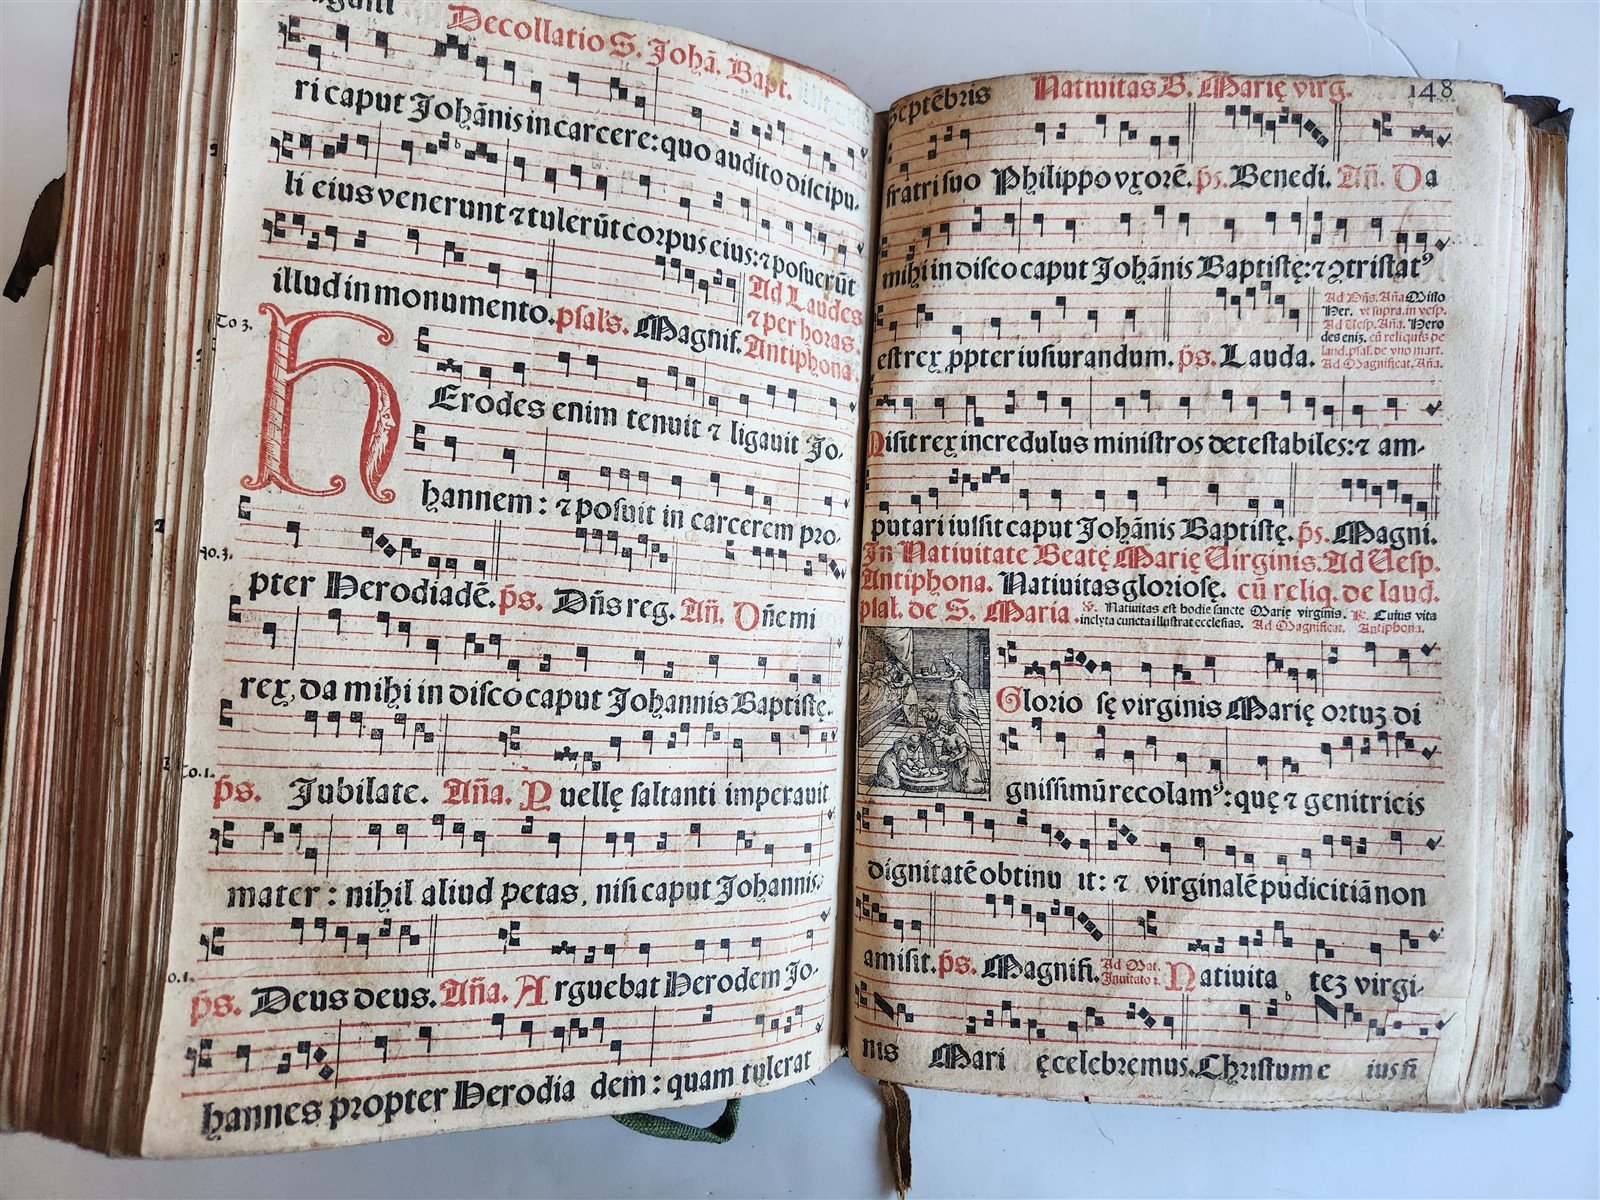 Decollatio S. Johā. Bapt.
ri caput Johānis in carcere: quo audito discipu-
li eius venerunt ⁊ tulerūt corpus eius: ⁊ posuerūt
illud in monumento. psal's. Magnif. Ad Laudes
⁊ per horas.
Antiphona.
To 3.
HErodes enim tenuit ⁊ ligauit Jo-
hannem: ⁊ posuit in carcerem pro-
pter Herodiadē. p̄s. Dn̄s reg. An̄. Dn̄e mi
rex, da mihi in disco caput Johannis Baptistę.
To.1.
p̄s. Jubilate. An̄a. Puellę saltanti imperauit
mater: nihil aliud petas, nisi caput Johannis.
p̄s. Deus deus. An̄a. Arguebat Herodem Jo-
hannes propter Herodia dem: quam tulerat
Septēbris Natiuitas B. Marię virg. 148
fratri suo Philippo vxorē. p̄s. Benedi. An̄. Da
mihi in disco caput Johānis Baptistę: ⁊ ꝯtristatꝰ
est rex ꝓpter iusiurandum. p̄s. Lauda.
Ad Bn̄s. An̄a Misso
Her. vt supra. in vesp.
Ad Uesp. An̄a. Hero
des eniz. cū reliquis de
laud. psal. de vno mart.
Ad Magnificat. An̄a.
Misit rex incredulus ministros detestabiles: ⁊ am-
putari iussit caput Johānis Baptistę. p̄s. Magni.
In Natiuitate Beatę Marię Uirginis. Ad Uesp.
Antiphona. Natiuitas gloriosę. cū reliq. de laud.
psal. de S. Maria. ℣. Natiuitas est hodie sancte Marię virginis. ℟. Cuius vita
inclyta cuncta illustrat ecclesias. Ad Magnificat. Antiphona.
Glorio sę virginis Marię ortuz di
gnissimū recolamꝰ: quę ⁊ genitricis
dignitatē obtinu it: ⁊ virginalē pudicitiā non
amisit. p̄s. Magnifi. Ad Mat.
Inuitato ꝛ. Natiuita tez virgi-
nis Mari ę celebremus. Christum e ius fi